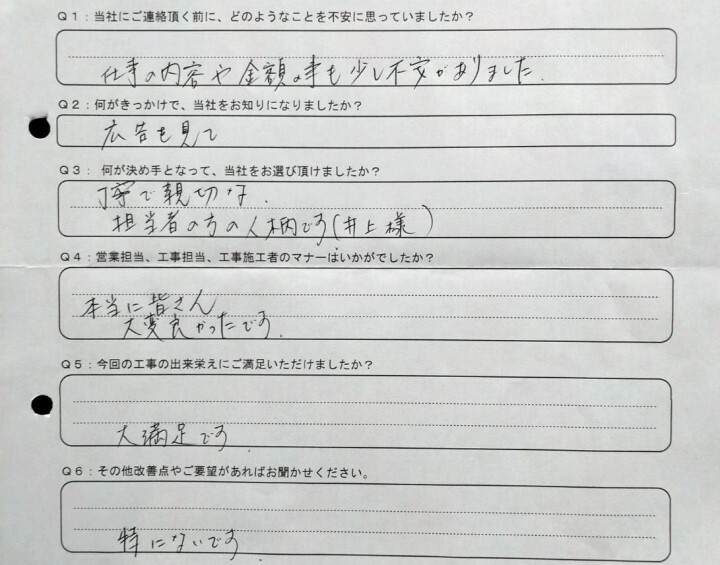 Q1：当社にご連絡頂く前に、どのようなことを不安に思っていましたか？
仕事の内容や金額の事も少し不安がありました.
Q2：何がきっかけで、当社をお知りになりましたか？
広告を見て
Q3： 何が決め手となって、当社をお選び頂けましたか？
丁寧で親切な.
担当者の方の人柄です(井上様)
Q4：営業担当、工事担当、工事施工者のマナーはいかがでしたか？
本当に皆さん
大変良かったです.
Q5：今回の工事の出来栄えにご満足いただけましたか？
大満足です.
Q6：その他改善点やご要望があればお聞かせください。
特にないです.